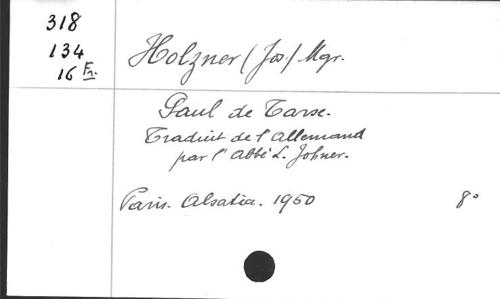 318
134
16 Fr.
Holzner (Jos) Mgr.
Paul de Tarse.
Traduit de l'Allemand
par l'Abbé L. Johner.
Paris. Alsatia. 1950
8°